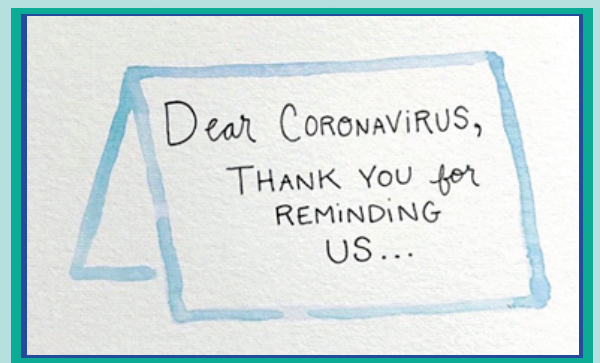 Dear CORONAViRUS,
THANK YOU for
REMiNDiNG
US...